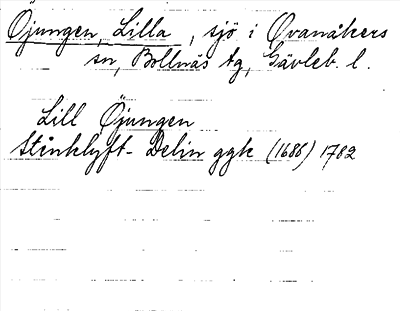 Öjungen, Lilla, sjö i Ovanåkers
sn, Bollnäs tg, Gävleb. l.
Lill Öjungen
Stenklyft- Delin ggk (1688) 1782